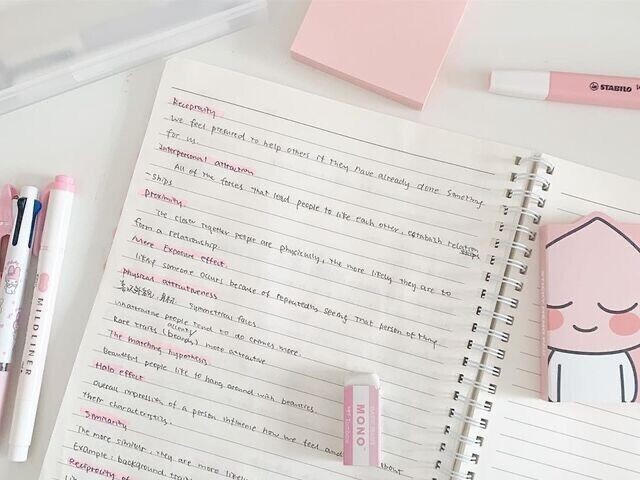 Reciprocity
We feel pressured to help others if they have already done something
for us.
Interpersonal attraction
All of the forces that lead people to like each other, establish relation
-ships
Proximity
The closer together people are physically, the more likely they are to
form a relationship.
Mere Exposure effect.
liking someone occurs because of repeatedly seeing that person or thing.
physical attractiveness
symmetrical faces
unattractive people tend to do crimes more.
Rare traits (beards) more attractive
The matching hypothesis
Beautiful people like to hang around with beauties.
Halo effect
overall impression of a person influence how we feel and about
their characteristics.
Similarity
The more similar, they are more likely
Example: background,
Reciprocity of
STABILO
MILDLINER
MONO